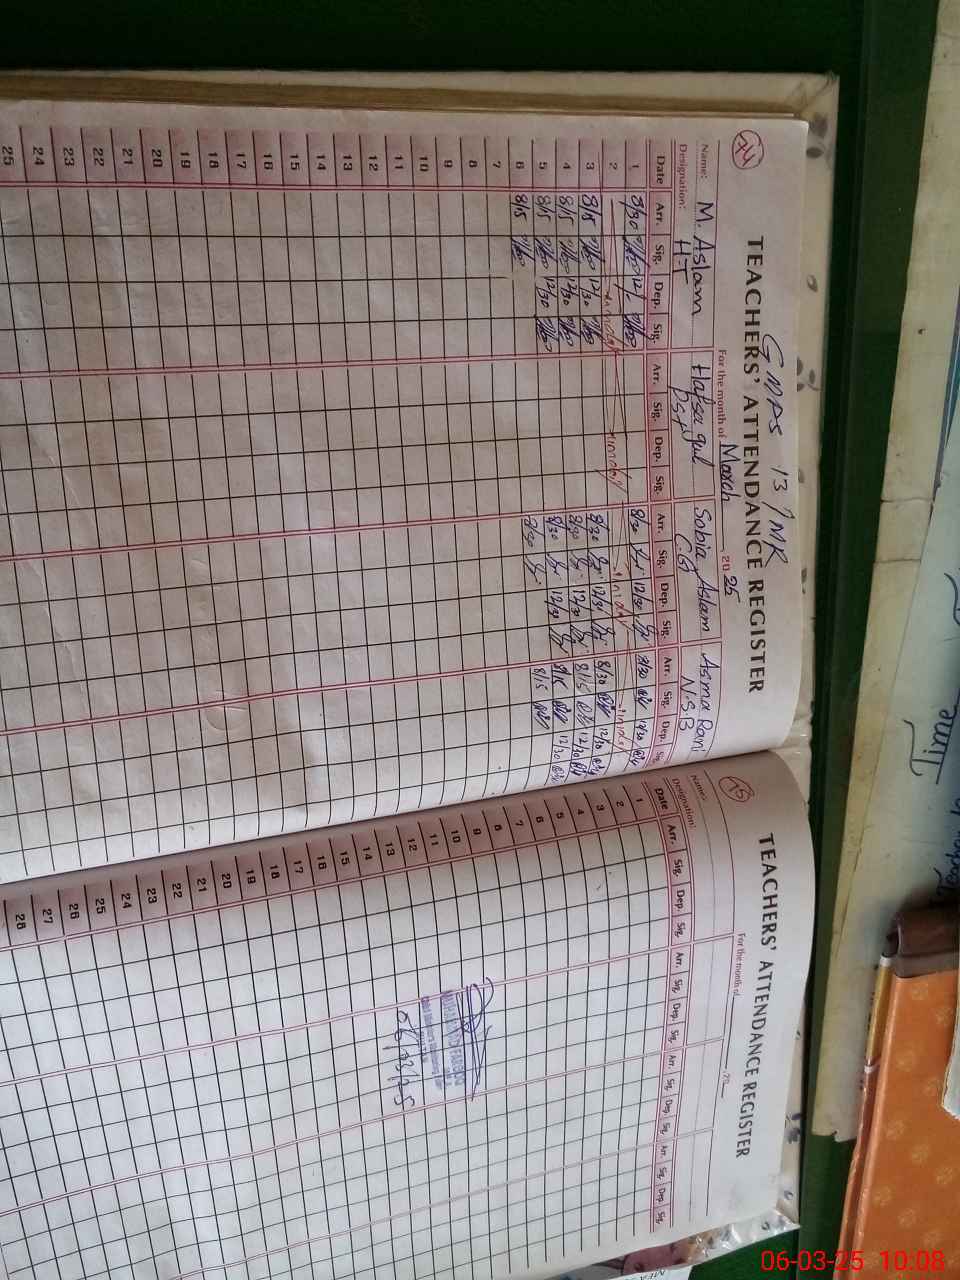 74
GMPS 13/MR
TEACHERS' ATTENDANCE REGISTER
For the month of March 2025
Name: M. Aslam Hafsa gul Sobia Aslam Asma Rani
Designation: H-T PST C.G N.S.B
Date Arr. Sig. Dep. Sig. Arr. Sig. Dep. Sig. Arr. Sig. Dep. Sig. Arr. Sig. Dep. Sig.
1 8/30 12/ 8/30 12/30 8/30 12/30
2
3 8/15 12/30 8/30 12/30 8/30 12/30
4 8/15 12/30 8/30 12/30 8/15 12/30
5 8/15 12/30 8/30 12/30 8/15 12/30
6 8/15 8/30 8/15
7
8
9
10
11
12
13
14
15
16
17
18
19
20
21
22
23
24
25
75
TEACHERS' ATTENDANCE REGISTER
For the month of 20
Name:
Designation:
Date Arr. Sig. Dep. Sig. Arr. Sig. Dep. Sig. Arr. Sig. Dep. Sig. Arr. Sig. Dep. Sig.
1
2
3
4
5
6
7
8
9
10
11
12
13
14
15
16
17
18
19
20
21
22
23
24
25
26
27
28
06/03/25
Time
06-03-25 10:08